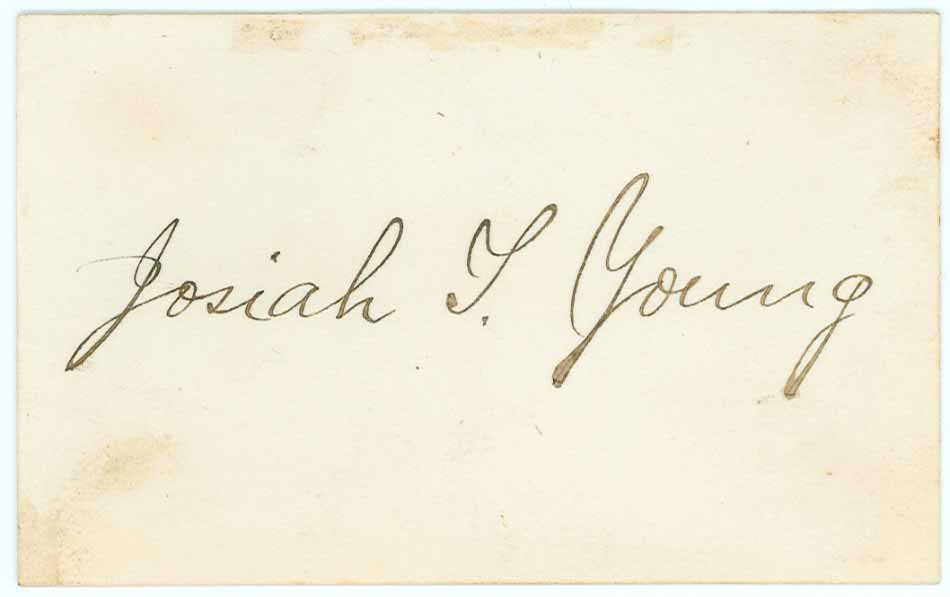 Josiah T. Young